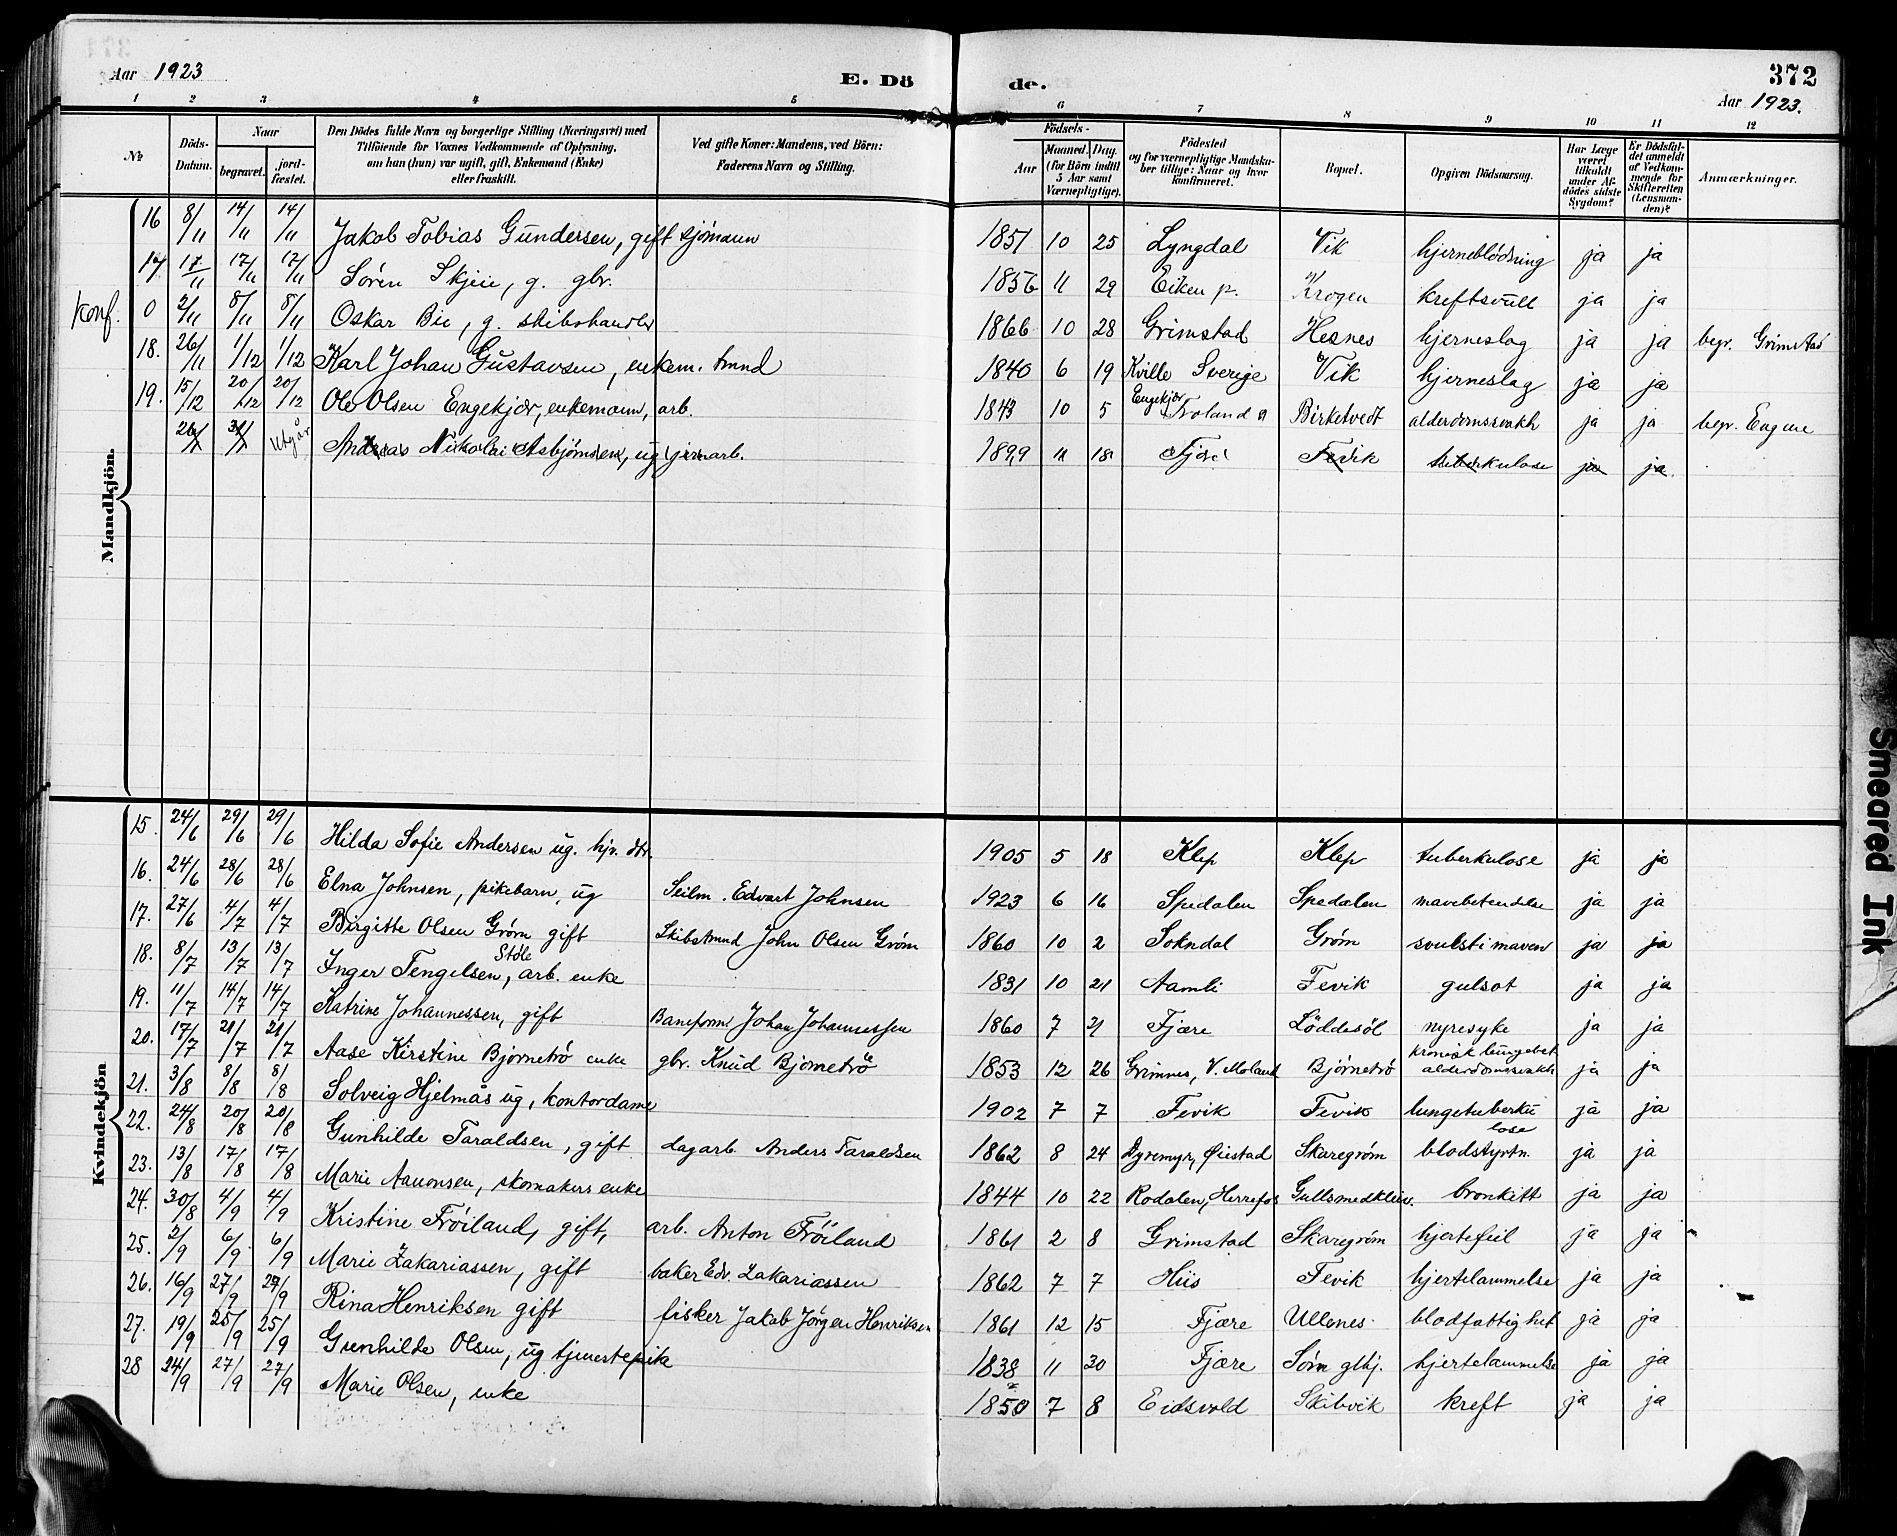 Aar 1923
E. Dö
de.
372
Aar 1923.
1 2 3 4 5 6 7 8 9 10 11 12
№ Döds-Datum. Naar begravet. jord-fæstet. Den Dödes fulde Navn og borgerlige Stilling (Næringsvei) med Tilföiende for Voxnes Vedkommende af Oplysning, om han (hun) var ugift, gift, Enkemand (Enke) eller fraskilt. Ved gifte Koner: Mandens, ved Börn: Faderens Navn og Stilling. Födsels- Aar Maaned. Dag. (for Börn indtil 5 Aar samt Værnepligtige). Födested og for værnepligtige Mandskaber tillige: Naar og hvor konfirmeret. Bopæl. Opgiven Dödsaarsag. Har Læge været tilkaldt under Afdödes sidste Sygdom? Er Dödsfaldet anmeldt af Vedkommende for Skifteretten (Lensmanden)? Anmærkninger.
Mandkjön.
16 8/11 14/11 14/11 Jakob Tobias Gundersen, gift sjømann 1851 10 25 Lyngdal Vik hjerneblödning ja ja
17. 17/11 17/11 Sören Skjeie, g. gbr. 1856 11 29 Eiken p. Krogen kreftsvull ja ja
Konf. 0 2/11 8/11 8/11 Oskar Bie, g. skibshandler 1866 10 28 Grimstad Hesnes hjerneslag ja ja begr. Grimstad
18. 26/11 1/12 1/12 Karl Johan Gustavsen, enkem. tmnd 1840 6 19 Kville Sverige Vik hjerneslag ja ja
19. 15/12 20/12 20/12 Ole Olsen Engekjær, enkemann, arb. 1843 10 5 Engekjær Froland Birketvedt alderdomssvakh ja ja begr. Engene
Utgår Andreas Nikolai Asbjørnsen, ug jernarb. 1899 11 18 Fjære Fevik tuberkulose ja ja.
Kvindekjön
15. 24/6 29/6 29/6 Hilda Sofie Andersen ug. hjv. dtr. 1905 5 18 Klep Klep tuberkulose ja ja
16. 24/6 28/6 28/6 Elna Johnsen, pikebarn, ug Seilm. Edvart Johnsen 1923 6 16 Spedalen Spedalen mavebetendelse ja ja
17. 27/6 4/7 4/7 Birgitte Olsen Grøm gift Skibstmnd John Olsen Grøm 1860 10 2 Sokndal Grøm svulst i maven ja ja
18. 8/7 13/7 13/7 Inger Tengelsen, Støle arb. enke 1831 10 21 Aamli Fevik gulsot ja ja
19. 11/7 14/7 14/7 Katrine Johannessen, gift Baneform Johan Johannessen 1860 7 21 Fjære Löddesöl nyresyke ja ja
20. 17/7 21/7 21/7 Aase Kirstine Bjørnetrö enke gbr. Knud Bjørnetrö 1853 12 26 Grimnes, V. Moland Bjørnetrö kronisk lungebet alderdomssvakh ja ja
21. 3/8 8/8 8/8 Solveig Hjelmås ug, kontordame 1902 7 7 Fevik Fevik lungetuberkulose ja ja
22. 24/8 20/8 20/8 Gunhilde Taraldsen, gift dagarb. Anders Taraldsen 1862 8 24 Dyremyr, Øiestad Skaregrøm blodstyrtn. ja ja
23. 13/8 17/8 17/8 Marie Aanonsen, skomakers enke 1844 10 22 Rodalen, Herrefos Gullsmedkleiv. bronkitt ja ja
24. 30/8 4/9 4/9 Kristine Fröiland, gift, arb. Anton Fröiland 1861 2 8 Grimstad Skaregrøm hjertefeil ja ja
25. 2/9 6/9 6/9 Marie Zakariassen, gift baker Edv. Zakariassen 1862 7 7 Hiis Fevik hjertelammelse ja ja
26. 16/9 27/9 Rina Henriksen gift fisker Jakob Jørgen Henriksen 1861 12 15 Fjære Ullenes blodfattighet ja ja
27. 19/9 25/9 25/9 Gunhilde Olsen, ug tjenestepike 1838 11 30 Fjære Sørn glhj. hjertelammelse ja ja
28 24/9 27/9 27/9 Marie Olsen, enke 1850 7 8 Eidsvold Skibvik kreft ja ja
Smeared Ink